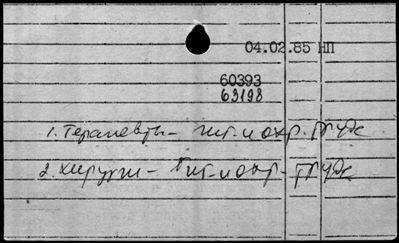 04.02.85 НП
60393
63198
1. Терапевты - гиг. и охр. труда
2. Хирурги - Гиг. и охр. труда